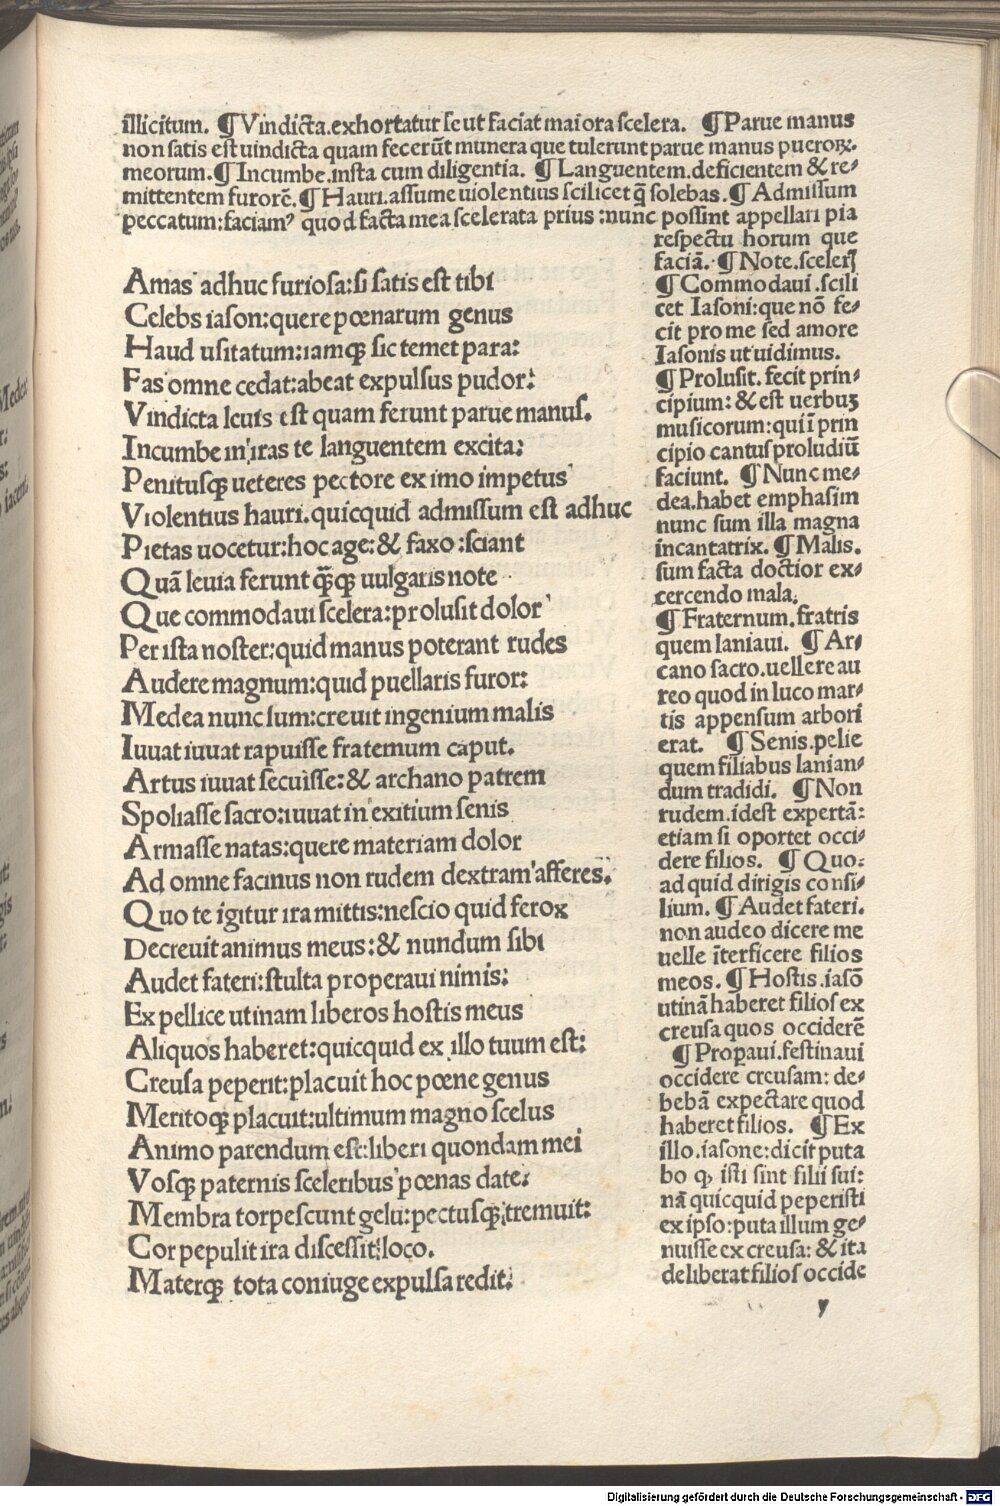 illicitum. ¶ Vindicta.exhortatur se ut faciat maiora scelera. ¶ Parue manus
non satis est uindicta quam fecerūt munera que tulerunt parue manus pueroꝝ.
meorum.¶ Incumbe.insta cum diligentia. ¶ Languentem.deficientem & re-
mittentem furorē.¶ Hauri.assume uiolentius scilicet q̄ solebas.¶ Admissum
peccatum:faciamꝰ quod facta mea scelerata prius :nunc possint appellari pia
respectu horum que
faciā. ¶ Note.sceleris
¶ Commodaui.scili
cet Iasoni:que nō fe-
cit pro me sed amore
Iasonis ut uidimus.
¶ Prolusit. fecit prin-
cipium: & est uerbuꝫ
musicorum:qui ī prin
cipio cantus proludiū
faciunt. ¶ Nunc me-
dea.habet emphasim
nunc sum illa magna
incantatrix. ¶ Malis.
sum facta doctior ex-
cercendo mala.
¶ Fraternum.fratris
quem laniaui. ¶ Ar-
cano sacro.uellere au
reo quod in luco mar-
tis appensum arbori
erat. ¶ Senis.pelie
quem filiabus lanian-
dum tradidi. ¶ Non
rudem.idest expertā:
etiam si oportet occi-
dere filios. ¶ Quo.
ad quid dirigis consi-
lium. ¶ Audet fateri.
non audeo dicere me
uelle īterficere filios
meos. ¶ Hostis.iasō
utinā haberet filios ex
creusa quos occiderē
¶ Propaui.festinaui
occidere creusam: de-
bebā expectare quod
haberet filios. ¶ Ex
illo.iasone:dicit puta
bo ꝙ isti sint filii sui:
nā quicquid peperisti
ex ipso:puta illum ge-
nuisse ex creusa: & ita
deliberat filios occide
Amas adhuc furiosa:si satis est tibi
Celebs iason:quere pœnarum genus
Haud usitatum:iamqꝫ sic temet para:
Fas omne cedat:abeat expulsus pudor:
Vindicta leuis est quam ferunt parue manus.
Incumbe in iras te languentem excita:
Penitusqꝫ ueteres pectore ex imo impetus
Violentius hauri.quicquid admissum est adhuc
Pietas uocetur:hoc age:& faxo :sciant
Quā leuia ferunt q̄qꝫ uulgaris note
Que commodaui scelera:prolusit dolor
Per ista noster:quid manus poterant rudes
Audere magnum:quid puellaris furor:
Medea nunc sum:creuit ingenium malis
Iuuat iuuat rapuisse fraternum caput.
Artus iuuat secuisse:& archano patrem
Spoliasse sacro:iuuat in exitium senis
Armasse natas:quere materiam dolor
Ad omne facinus non rudem dextram afferes.
Quo te igitur ira mittis:nescio quid ferox
Decreuit animus meus:& nundum sibi
Audet fateri:stulta properaui nimis:
Ex pellice utinam liberos hostis meus
Aliquos haberet:quicquid ex illo tuum est:
Creusa peperit:placuit hoc pœne genus
Meritoqꝫ placuit:ultimum magno scelus
Animo parendum est:liberi quondam mei
Vosqꝫ paternis sceleribus pœnas date:
Membra torpescunt gelu:pectusqꝫ tremuit:
Cor pepulit ira discessit loco.
Materqꝫ tota coniuge expulsa redit:
y
Digitalisierung gefördert durch die Deutsche Forschungsgemeinschaft - DFG